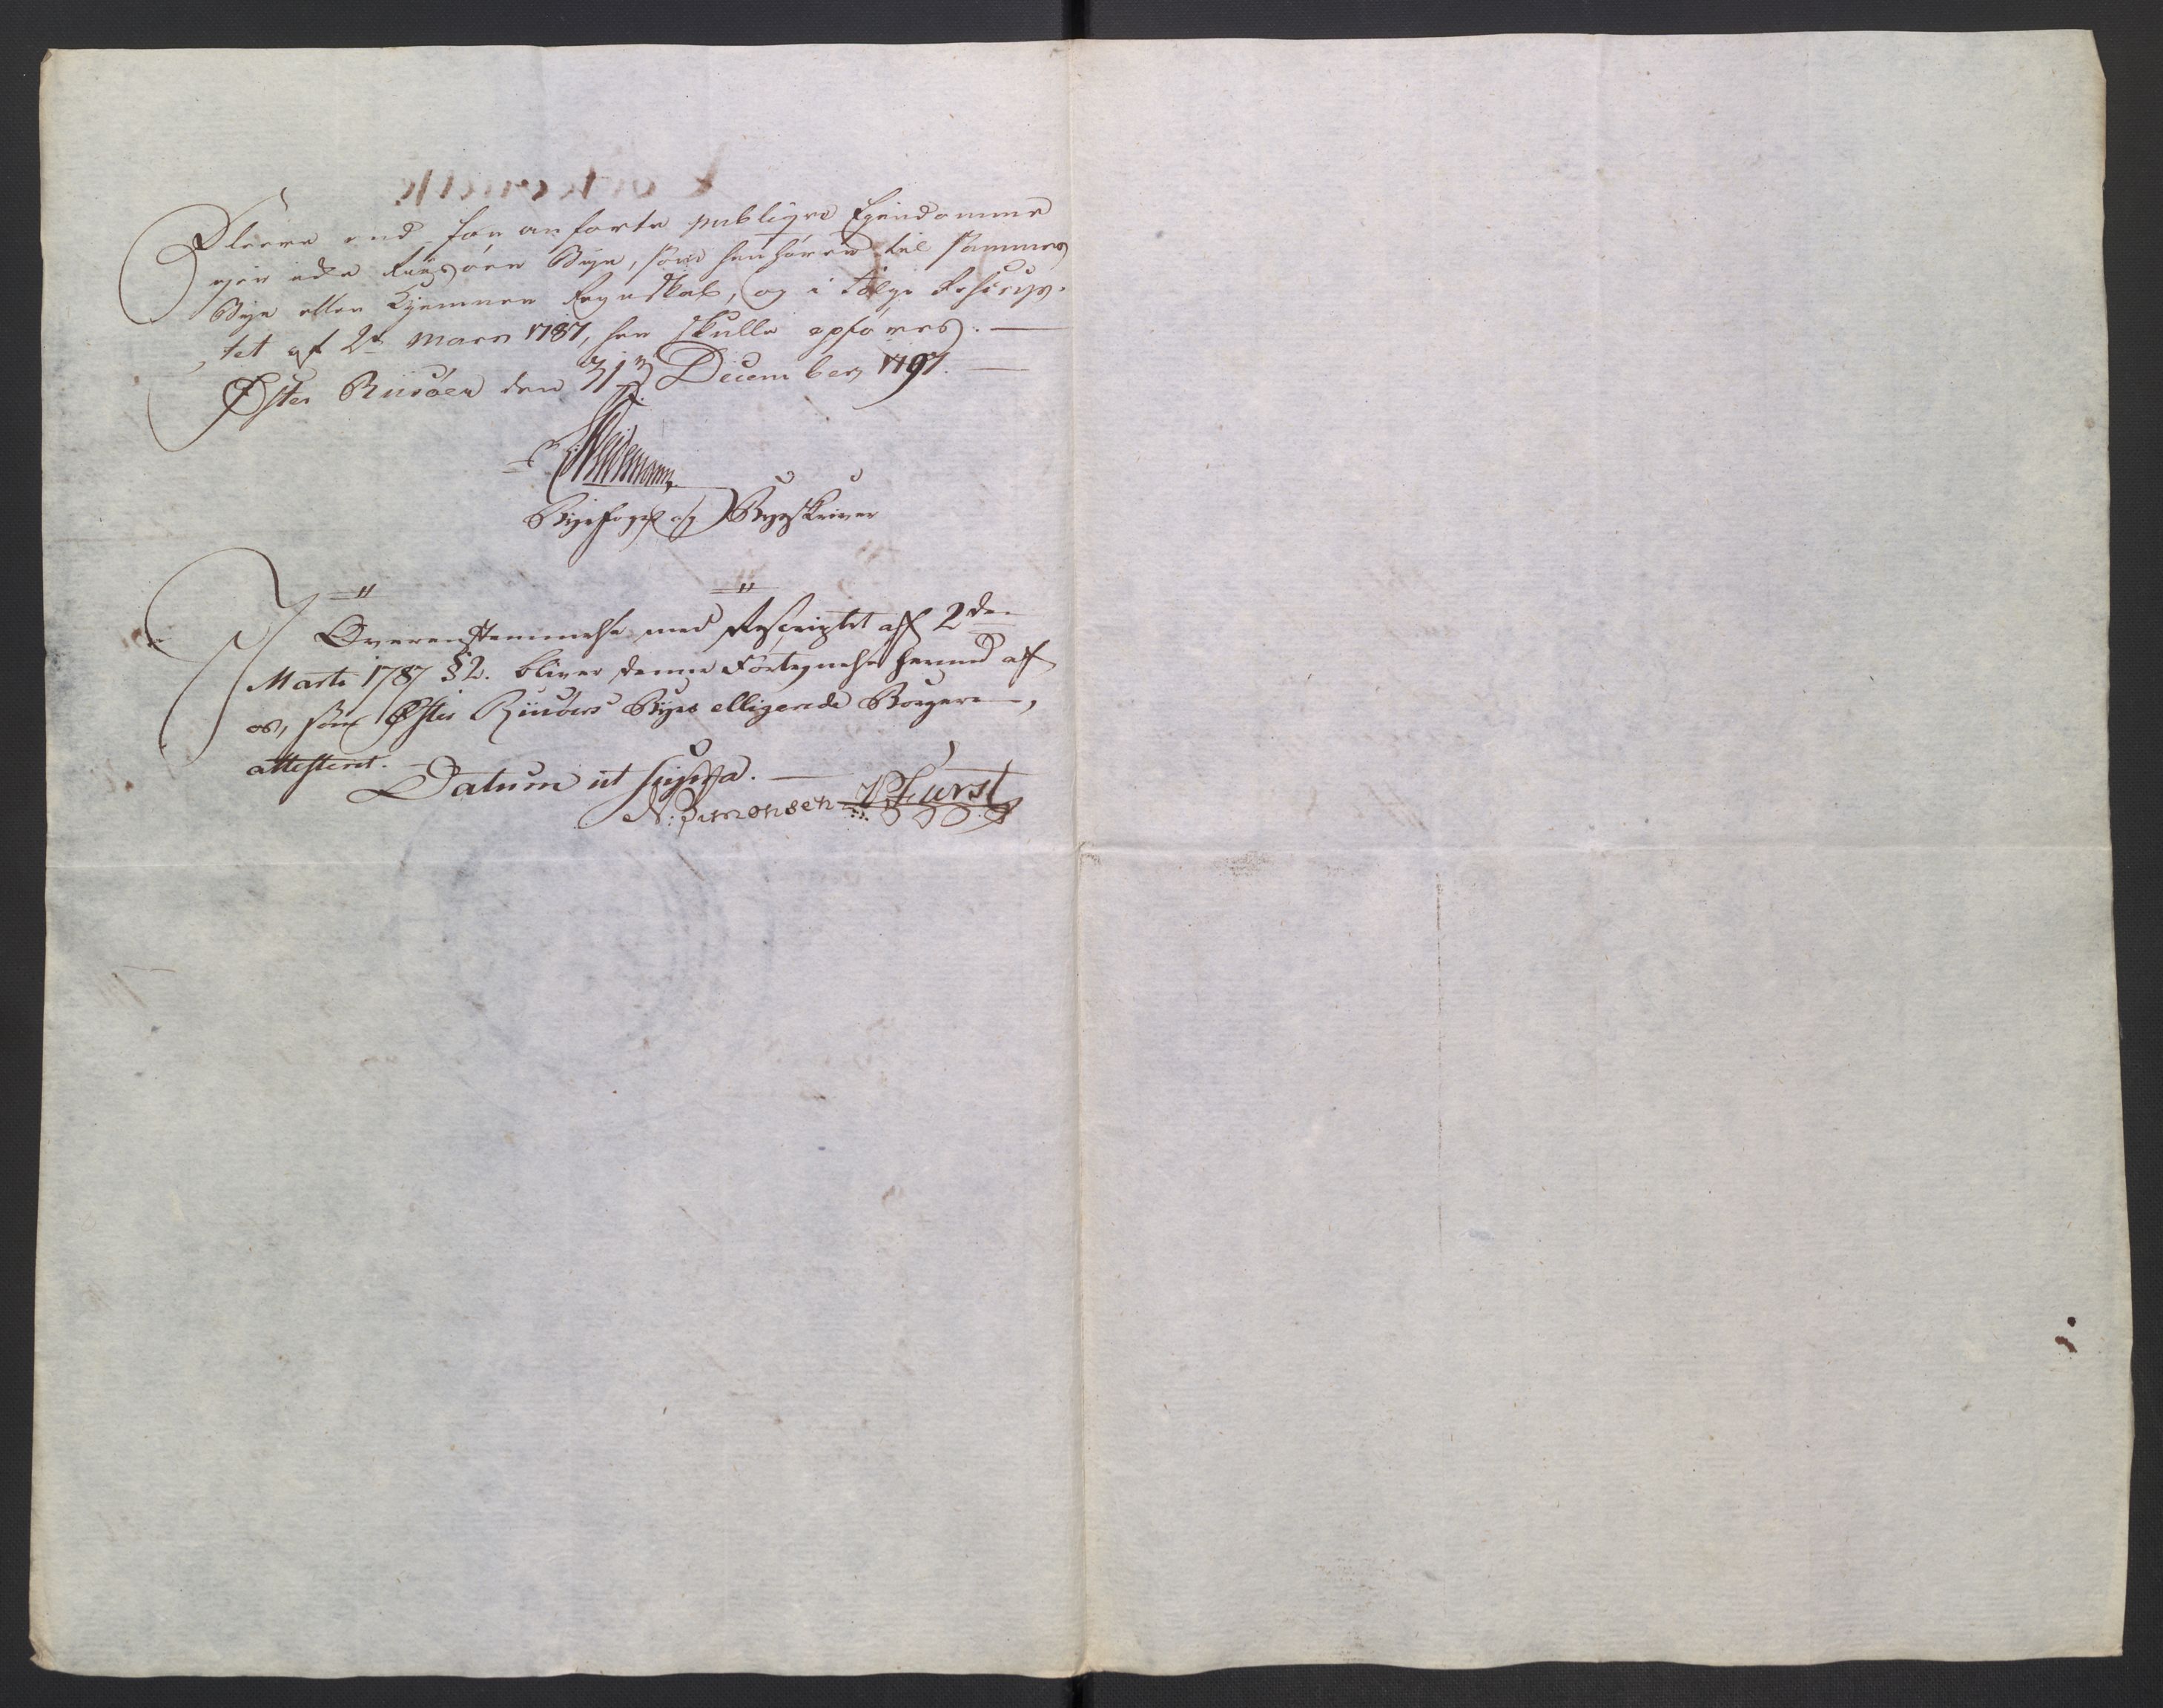 Fleere end foranførte publiqve Eyendomme
Riisøer Bye, som henhører til sammes
Bye eller Kjemner Regnskab, og i følge Rescrip-
tet af 2de Marts 1787, her skulle opføres. —
Øster Riisøer den 31te December 1797. —
Weidemann
Byefoged og Byeskriver
I
Overensstemmelse med Rescriptet aff 2den
Marti 1787 § 2. bliver denne Fortegnelse hermed aff
os, som Øster Riisøers Byes elligerede Borgere,
attesteret. —
Datum ut supra. —
N: Simonsen Furst